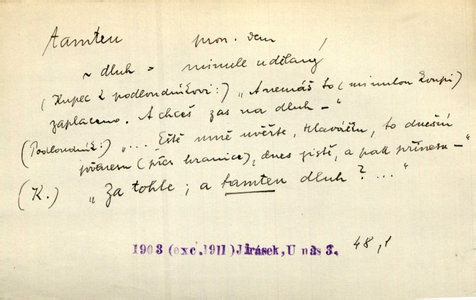 tamten pron. dem
~ dluh = minule udělaný
(Kupec k podloudníkovi:) "A nemáš to (minulou koupi)
zaplaceno. A chceš zas na dluh –"
(Podloudník:) "... Eště mně věřte, Hlaváčku, to dnešní
přenesu (přes hranice), dnes jistě, a pak přinesu –"
(K.) "Za tohle; a tamten dluh? ..."
1903 (exc. 1911) Jirásek, U nás 3. 48,1